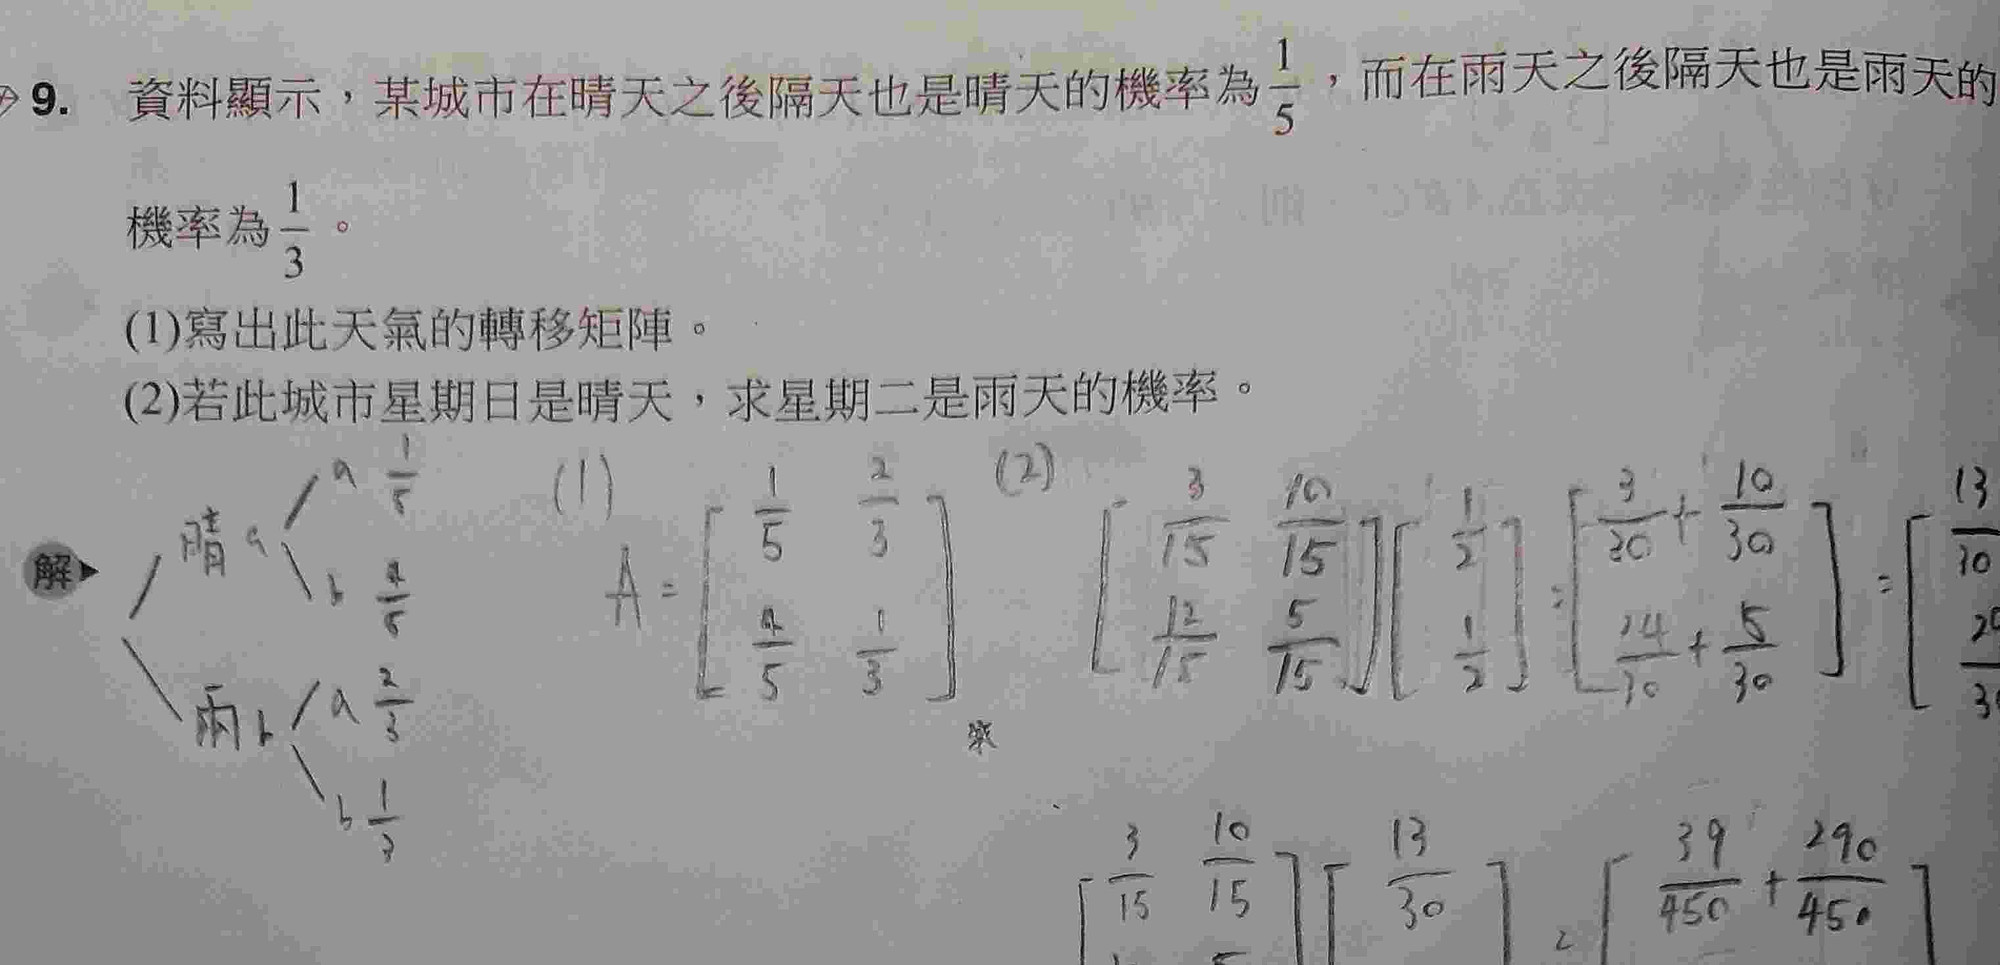 9. 資料顯示，某城市在晴天之後隔天也是晴天的機率為 1/5，而在雨天之後隔天也是雨天的
機率為 1/3。
(1)寫出此天氣的轉移矩陣。
(2)若此城市星期日是晴天，求星期二是雨天的機率。
解
晴 a
a 1/5
b 4/5
雨 b
a 2/3
b 1/3
(1)
A = [ 1/5 2/3
4/5 1/3 ]
(2)
[ 3/15 10/15
12/15 5/15 ] [ 1/2
1/2 ] = [ 3/30 + 10/30
24/30 + 5/30 ] = [ 13/30
[ 3/15 10/15 ] [ 13/30 ] = [ 39/450 + 290/450 ]